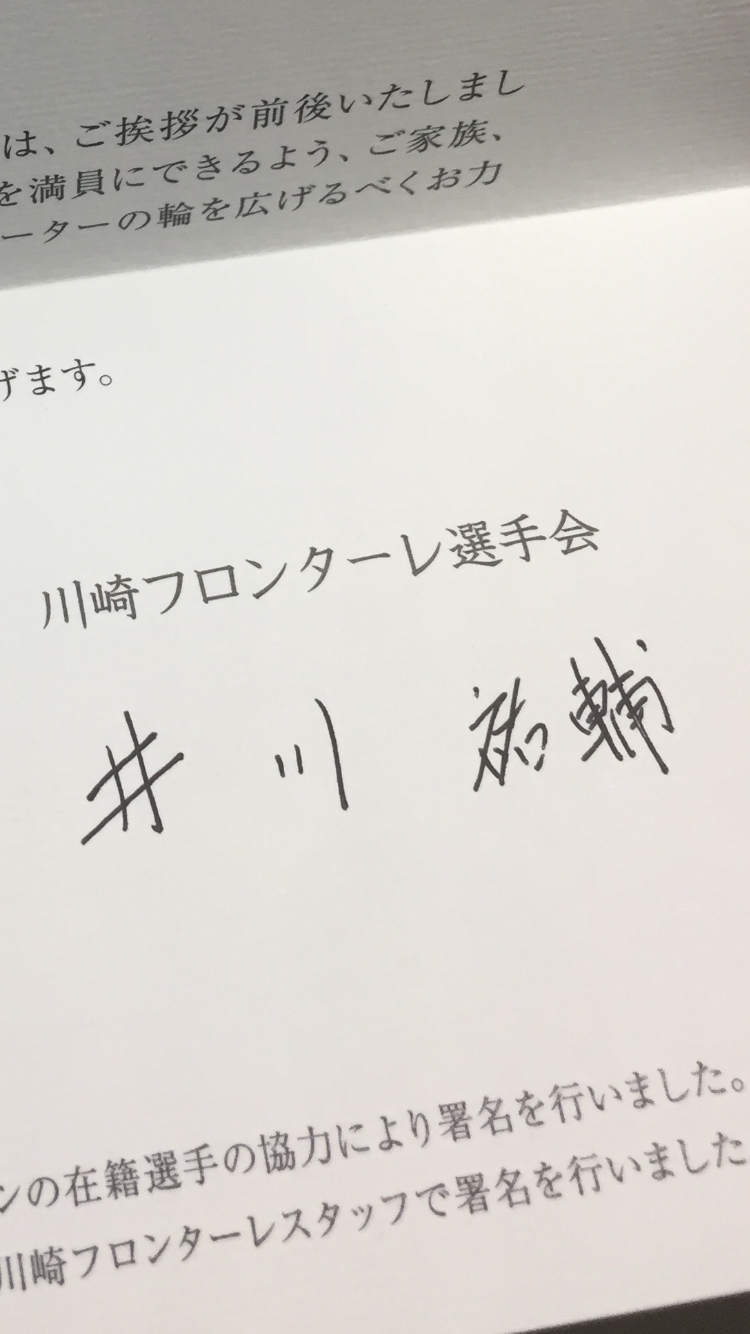 は、ご挨拶が前後いたしまし
を満員にできるよう、ご家族、
ーターの輪を広げるべくお力
げます。
川崎フロンターレ選手会
井川 祐輔
ンの在籍選手の協力により署名を行いました。
川崎フロンターレスタッフで署名を行いました